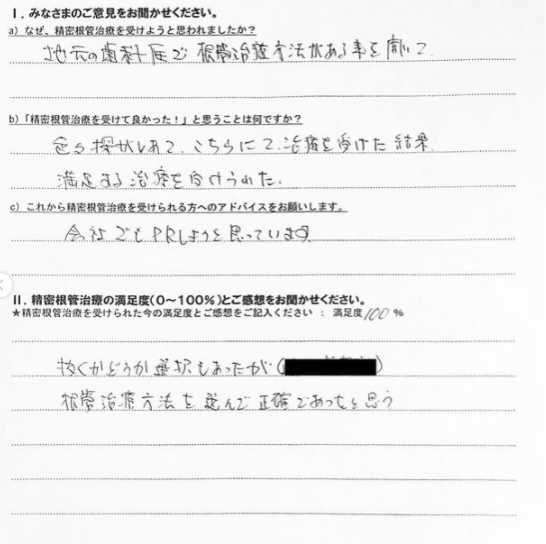 I．みなさまのご意見をお聞かせください。
a）なぜ、精密根管治療を受けようと思われましたか？
地元の歯科医で 根管治療方法がある事を聞いて.
b）「精密根管治療を受けて良かった！」と思うことは何ですか？
色々探がしあて、こちらにて、治療を受けた結果.
満足する治療を受けられた.
c）これから精密根管治療を受けられる方へのアドバイスをお願いします。
会社でもPRしようと思っています
II．精密根管治療の満足度（0～100％）とご感想をお聞かせください。
★精密根管治療を受けられた今の満足度とご感想をご記入ください ： 満足度 100 ％
抜くかどうか選択もあったが（ ）
根管治療方法を選んで正確であったと思う